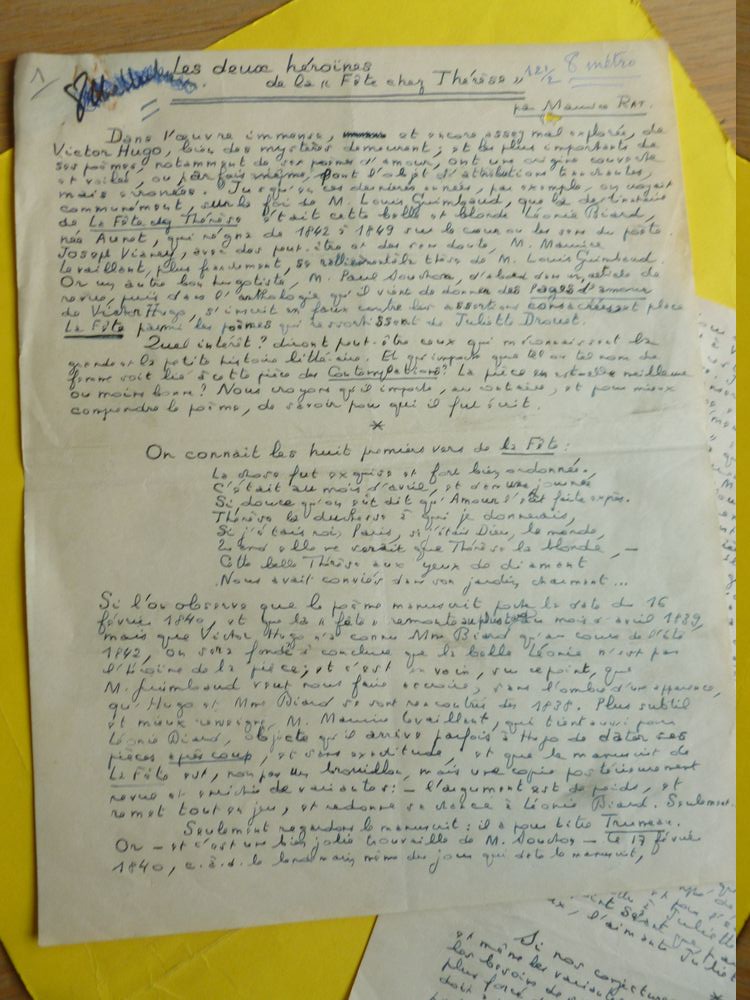 1/
Les deux héroïnes
de la « Fête chez Thérèse »
12 1/2 8 métro
par Maurice RAT.
Dans l'œuvre immense, et encore assez mal explorée, de
Victor Hugo, bien des mystères demeurent ; et les plus importants de
ses poèmes, notamment de ses poèmes d'amour, ont une origine couverte
et voilée, ou parfois même, font l'objet d'attributions tenues,
mais erronées. Jusqu'en ces dernières années, par exemple, on voyait
communément, sur la foi de M. Louis Guimbaud, que la destinataire
de La Fête chez Thérèse était cette belle et blonde Léonie Biard,
née Aunet, qui régna de 1842 à 1849 sur le cœur ou les sens du poète.
Joseph Vianey, avec des peut-être et des sans doute, M. Maurice
Levaillant, plus fermement, se rallièrent à la thèse de M. Louis Guimbaud.
Or un autre bon hugotiste, M. Paul Souchon, d'abord dans un article de
revue, puis dans l'anthologie qu'il vient de donner des Pages d'amour
de Victor Hugo, s'inscrit en faux contre les assertions et place
La Fête parmi les poèmes qui ressortissent de Juliette Drouet.
Quel intérêt ? diront peut-être ceux qui méconnaissent la
grande et la petite histoire littéraire. Et qu'importe que tel ou tel nom de
femme soit lié à cette pièce des Contemplations ? La pièce en est-elle meilleure
ou moins bonne ? Nous croyons qu'il importe, au contraire, et pour mieux
comprendre le poème, de savoir pour qui il fut écrit.
*
On connaît les huit premiers vers de la Fête :
La chose fut exquise et fort bien ordonnée.
C'était au mois d'avril, et dans une journée
Si douce qu'on eût dit qu'Amour l'eût faite exprès.
Thérèse la duchesse à qui je donnerais,
Si j'étais roi, Paris, si j'étais Dieu, le monde,
Quand elle ne serait que Thérèse la blonde, —
Cette belle Thérèse aux yeux de diamant
Nous avait conviés dans son jardin charmant...
Si l'on observe que le poème manuscrit porte la date du 16
février 1840, et que la « fête » remonte au plus tard au mois d'avril 1839,
mais que Victor Hugo n'a connu Mme Biard qu'au cours de l'été
1842, on sera fondé à conclure que la belle Léonie n'est pas
l'héroïne de la pièce ; et c'est en vain, sur ce point, que
M. Guimbaud veut nous faire accroire, sans l'ombre d'une apparence,
qu'Hugo et Mme Biard se sont rencontrés dès 1838. Plus subtil
et mieux renseigné, M. Maurice Levaillant, qui tient aussi pour
Léonie Biard, objecte qu'il arrive parfois à Hugo de dater ses
pièces après coup, et sans exactitude, et que le manuscrit de
La Fête est, non pas un brouillon, mais une copie postérieurement
revue et enrichie de variantes : — l'argument est de poids, et
remet tout en jeu, et redonne sa chance à Léonie Biard. Seulement...
Seulement regardons le manuscrit : il a pour titre Trumeau.
Or — et c'est une bien jolie trouvaille de M. Souchon — le 17 février
1840, c.à.d. le lendemain même du jour qui date le manuscrit,
Si nos conjectures
et même les variantes
les besoins de
plus forcé
doit